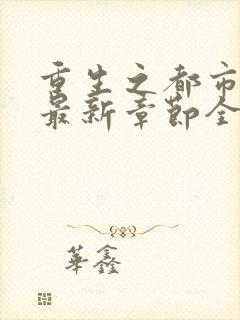 重生之都市
最新章节全
華鑫